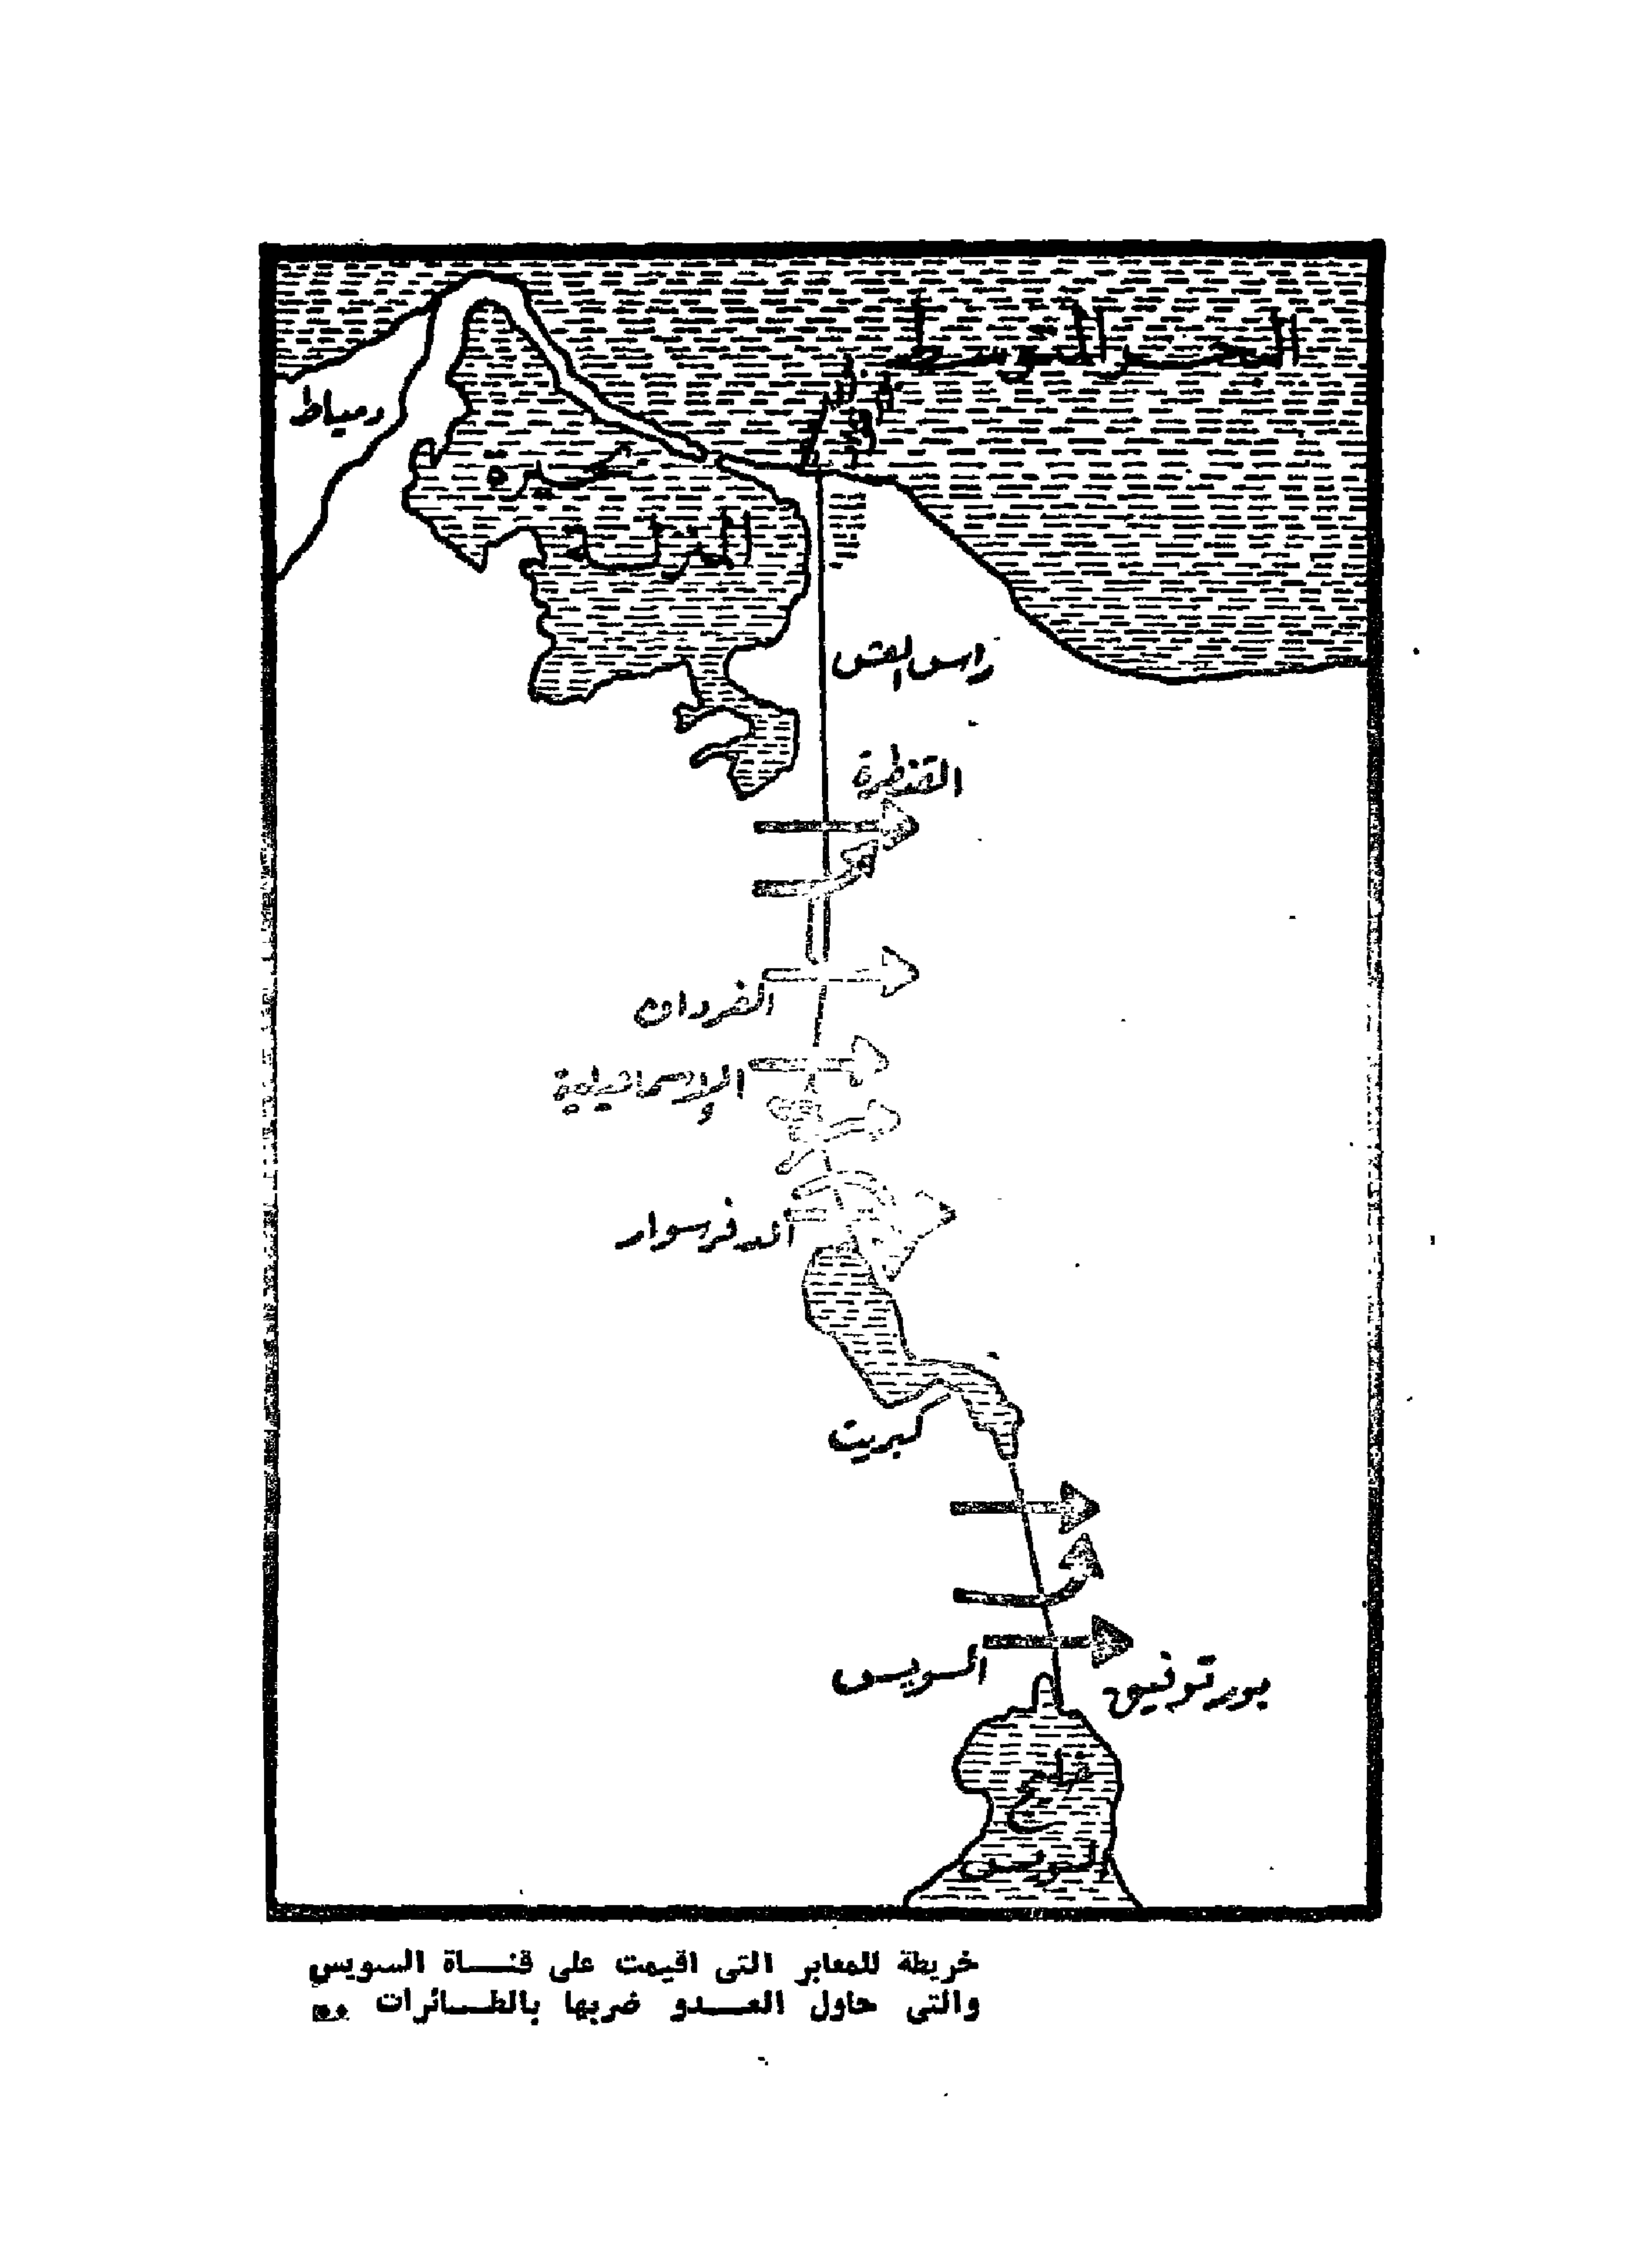 البحر المتوسط
دمياط
بحيرة
المنزلة
راس العش
القنطرة
الفردان
الإسماعيلية
الدفرسوار
كبريت
السويس
بور توفيق
خليج
السويس
خريطة للمعابر التى اقيمت على قنـــاة السويس
والتى حاول العـــدو ضربها بالطـــائرات